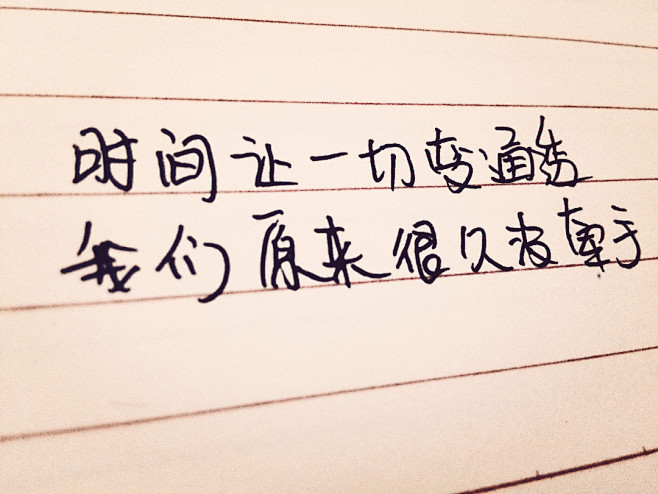 时间让一切变通透
我们原来很久没牵手